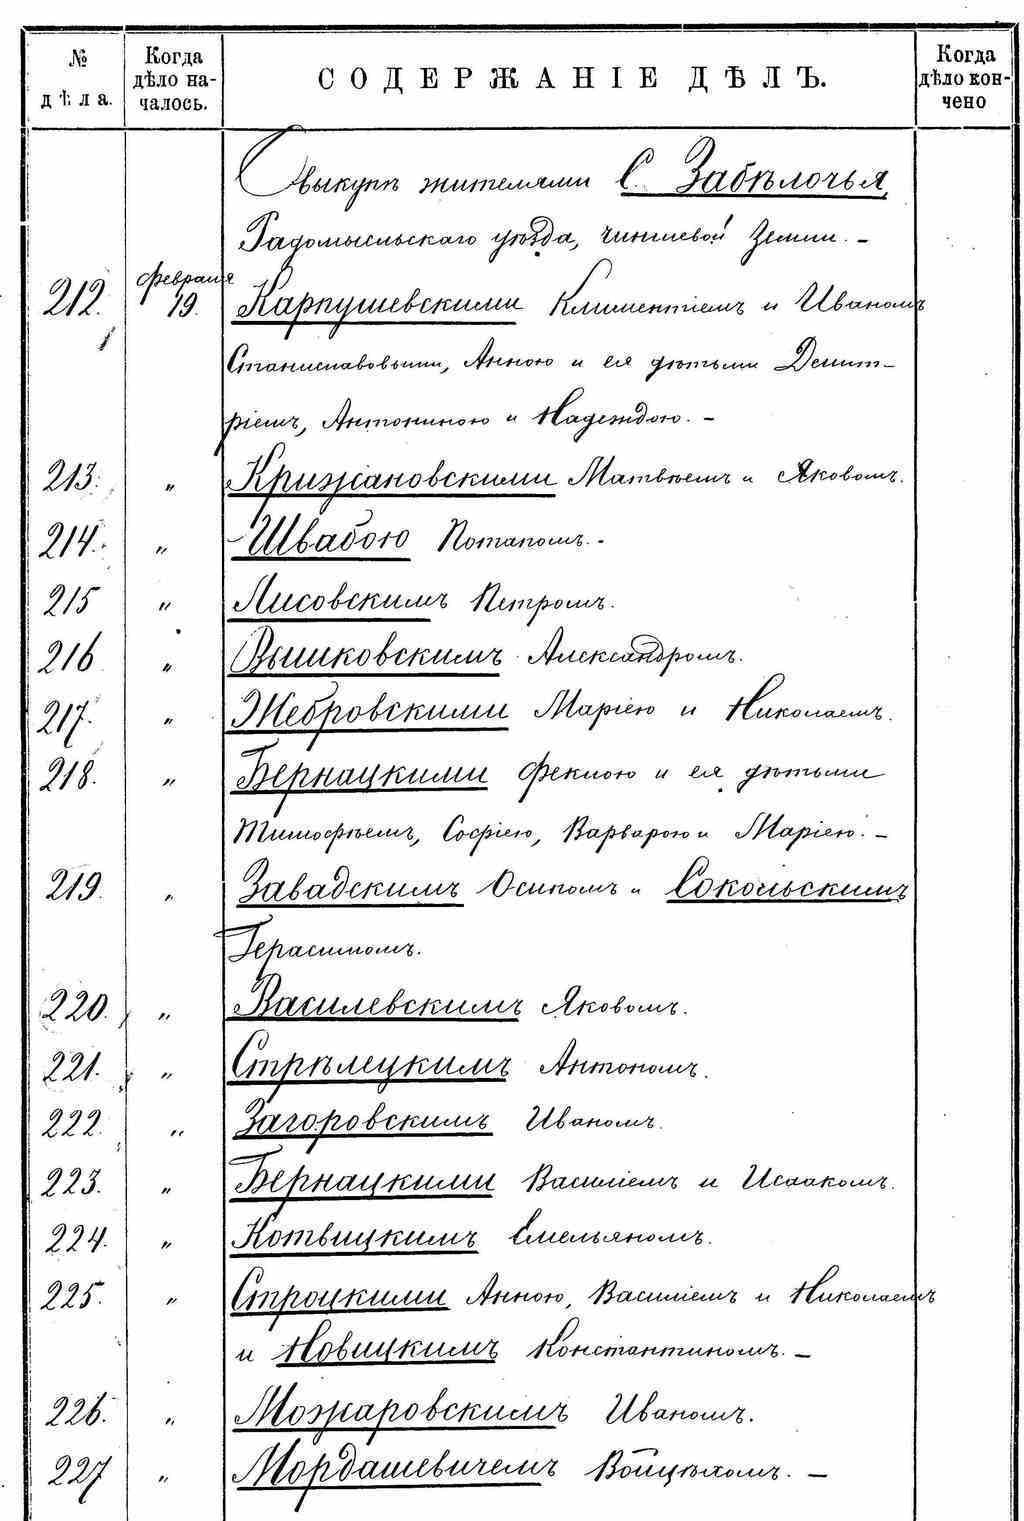 № дѣла.
Когда дѣло началось.
СОДЕРЖАНІЕ ДѢЛЪ.
Когда дѣло кончено
О выкупѣ жителями С. Забѣлочья,
Радомысльскаго уѣзда, чиншевой земли. —
212. февраля 19. Карпушевскими Климентіемъ и Иваномъ
Станиславовыми, Анною и ея дѣтьми Демит-
ріемъ, Антониною и Надеждою. —
213. " Крижановскими Матвѣемъ и Яковомъ.
214. " Швабою Потапомъ. -
215 " Лисовскимъ Петромъ.
216 " Вышковскимъ Александромъ.
217. " Жебровскими Маріею и Николаемъ.
218. " Бернацкими Феклою и ея дѣтьми
Тимофѣемъ, Софіею, Варварою и Маріею. —
219. " Завадскимъ Осипомъ и Сокольскимъ
Герасимомъ.
220. " Василевскимъ Яковомъ.
221. " Стрѣлецкимъ Антономъ.
222. " Загоровскимъ Иваномъ.
223. " Бернацкими Василіемъ и Исаакомъ.
224. " Котвицкимъ Емельяномъ.
225. " Строцкими Анною, Василіемъ и Николаемъ
и Новицкимъ Константиномъ. —
226. " Можаровскимъ Иваномъ.
227 " Мордашевичемъ Войцѣхомъ. —